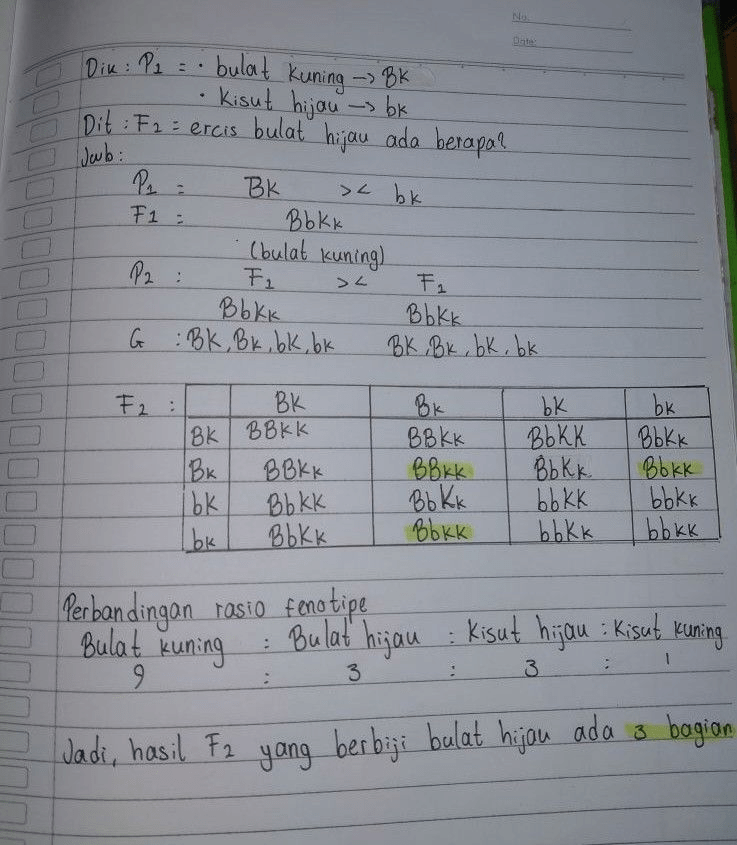 No.
Date:
Dik : P1 = · bulat kuning → BK
· Kisut hijau → bk
Dit : F2 = ercis bulat hijau ada berapa?
Jwb :
P1 = BK >< bk
F1 = BbKk
(bulat kuning)
P2 : F1 >< F1
BbKk BbKk
G : BK, Bk, bK, bk BK, Bk, bK, bk
F2 : BK Bk bK bk
BK BBKK BBKk BbKK BbKk
Bk BBKk BBkk BbKk Bbkk
bK BbKK BbKk bbKK bbKk
bk BbKk Bbkk bbKk bbkk
Perbandingan rasio fenotipe
Bulat kuning : Bulat hijau : Kisut hijau : Kisut kuning
9 : 3 : 3 : 1
Jadi, hasil F2 yang berbiji bulat hijau ada 3 bagian